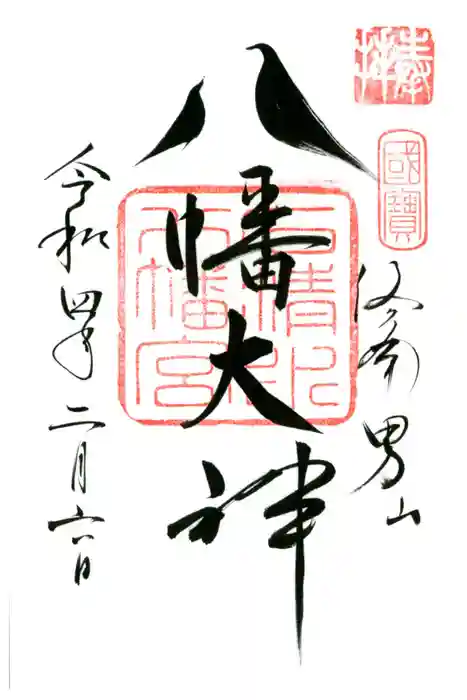 奉拝
國寶
男山
八幡大神
石清水八幡宮
令和四年二月六日